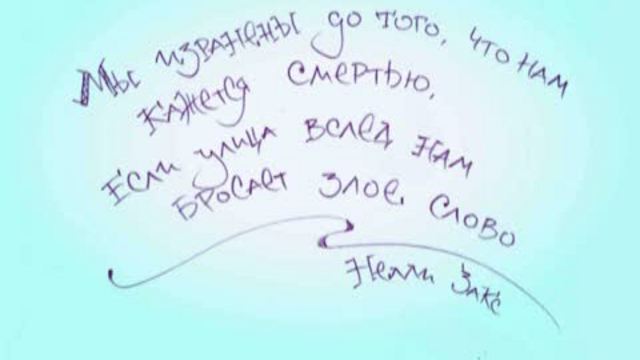 Мы изранены до того, что нам
кажется смертью,
Если улица вслед нам
бросает злое, слово
Нелли Закс